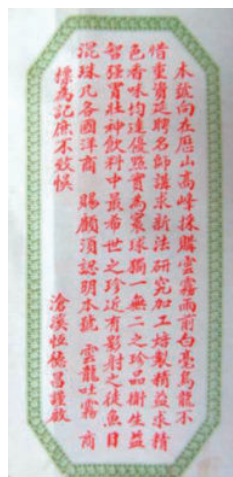 本號向在歷山高峰採購雲霧雨前白毫烏龍不
惜重資延聘名師講求新法研究加工培製精益求精
色香味均達優點實為寰球獨一無二之珍品衛生益
智強胃壯神飲料中最希世之珍近有影射之徒魚目
混珠凡各國洋商 賜顧須認明本號 雲龍吐霧 商
標為記庶不致悞
滄溪恒德昌謹啟